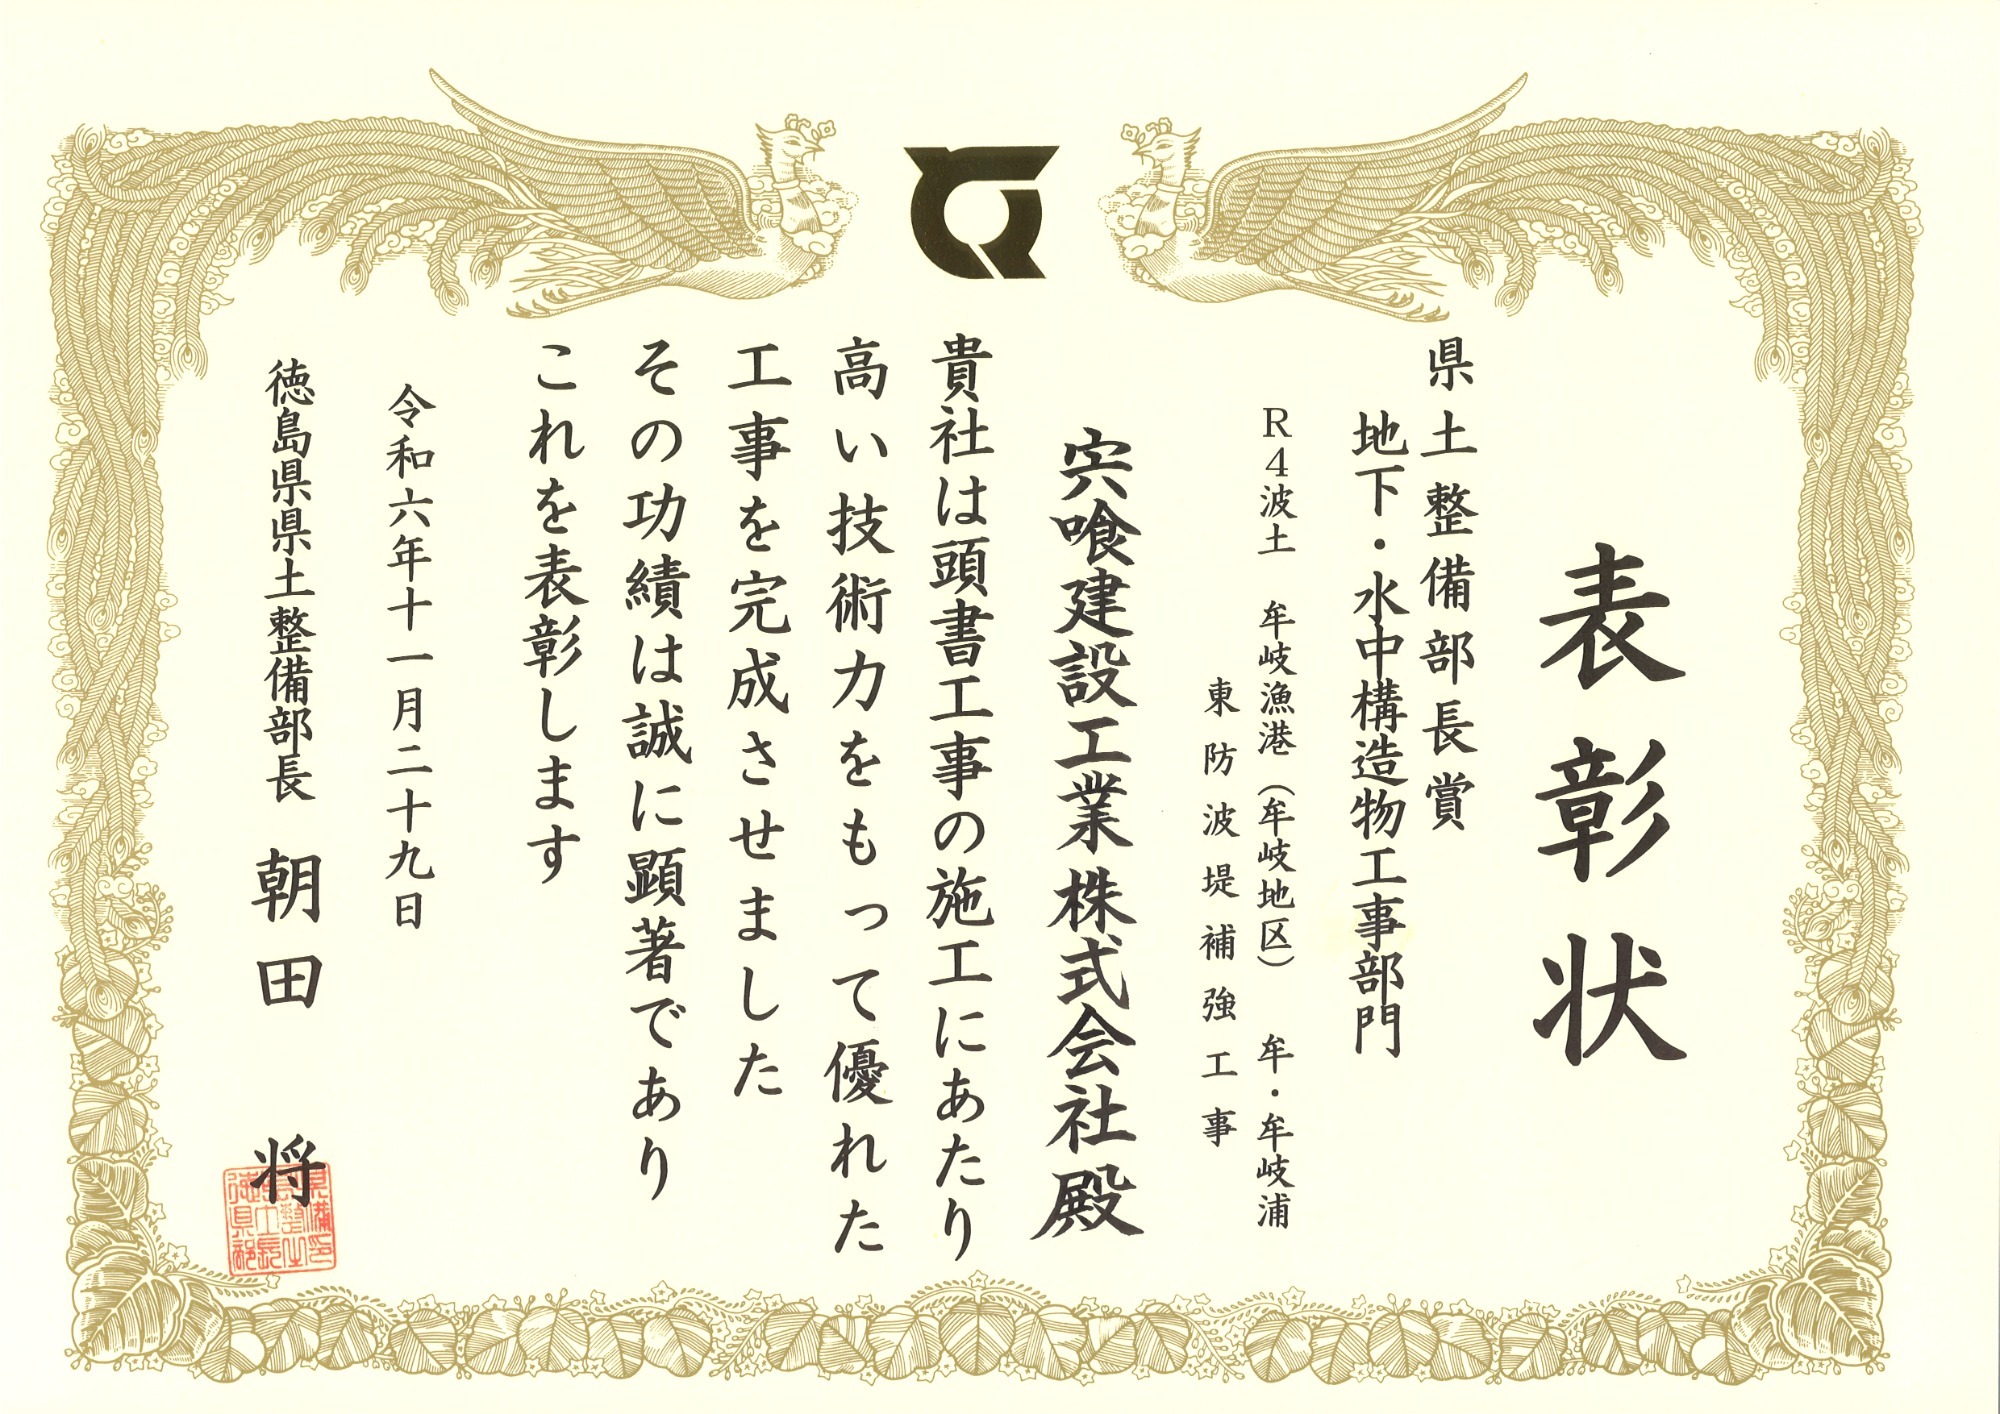 表彰状
県土整備部長賞
地下・水中構造物工事部門
R4波土　牟岐漁港（牟岐地区）　牟・牟岐浦
東防波堤補強工事
宍喰建設工業株式会社殿
貴社は頭書工事の施工にあたり
高い技術力をもって優れた
工事を完成させました
その功績は誠に顕著であり
これを表彰します
令和六年十一月二十九日
徳島県県土整備部長　朝田　将